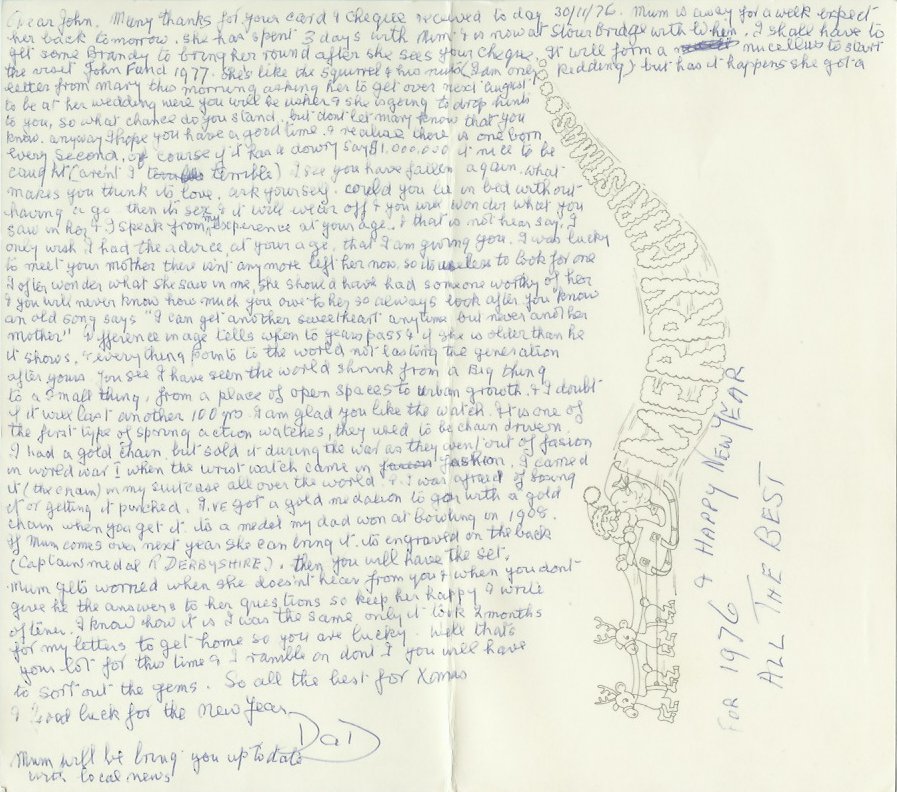 Dear John. Many thanks for your card & cheque received to day 30/11/76. Mum is away for a week expect
her back tomorrow. She has spent 3 days with Mim & is now at Stourbridge with Whin. I shall have to
get some Brandy to bring her round after she sees your cheque. It will form a nucellus to start
the visit John Fund 1977. She's like the Squirrel & his nuts (I am only kidding) but has it happens she got a
letter from mary this morning asking her to get over next august
to be at her wedding were you will be usher & she is going to drop hints
to you, so what chance do you stand. but don't let mary know that you
know. anyway I hope you have a good time. & realise there is one born
every second, of course if it has a dowry say $1.000,000 it nice to be
caught (aren't I terrible) I see you have fallen again. what
makes you think its love. ask yourself. could you lie in bed without
having a go. then its sex & it will wear off & you will wonder what you
saw in her & I speak from my experience at your age. & that is not hear say, I
only wish I had the advice at your age, that I am giving you. I was lucky
to meet your mother there isn't any more left her now, so its useless to look for one
I ofter wonder what she saw in me, she should have had someone worthy of her
& you will never know how much you owe to her so always look after you know
an old song says "I can get another sweetheart anytime but never another
mother" difference in age tells when to years pass & if she is older than he
it shows, & everything points to the world not lasting the generation
after yours you see I have seen the world shrink from a Big thing
to a small thing, from a place of open spaces to urban growth. & I doubt
if it will last another 100 yrs. I am glad you like the watch. It is one of
the first type of spring action watches, they used to be chain driven.
I had a gold chain, but sold it during the war as they went out of fasion
in world war I when the wrist watch came in fashion. I carried
it (the chain) in my suitcase all over the world & I was afraid of losing
it or getting it pinched. I.ve got a gold medalion to go with a gold
chain when you get it. its a medel my dad won at bowling in 1908.
If Mum comes over next year she can bring it. its engraved on the back
(Captains medal R DERBYSHIRE). then you will have the set.
Mum gets worried when she doesn't hear from you & when you dont
give he the answers to her questions so keep her happy & write
oftener. I know how it is I was the same only it took 2 months
for my letters to get home so you are lucky. Well thats
your lot for this time & I ramble on dont I you will have
to sort out the gems. So all the best for Xmas
& Good luck for the New Year
DaD
Mum will be bring you up to date
with local news
MERRY CHRISTMAS
FOR 1976 & HAPPY NEW YEAR
ALL THE BEST